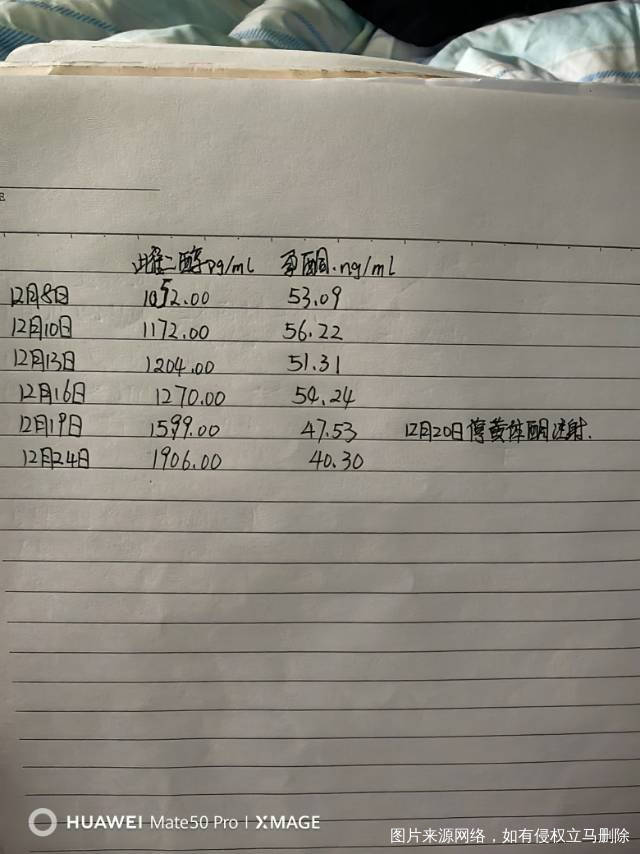 E
雌二醇pg/ml 孕酮.ng/ml
12月8日 1052.00 53.09
12月10日 1172.00 56.22
12月13日 1204.00 51.31
12月16日 1270.00 54.24
12月19日 1599.00 47.53 12月20日停黄体酮注射.
12月24日 1906.00 40.30
HUAWEI Mate50 Pro | XMAGE
图片来源网络，如有侵权立马删除